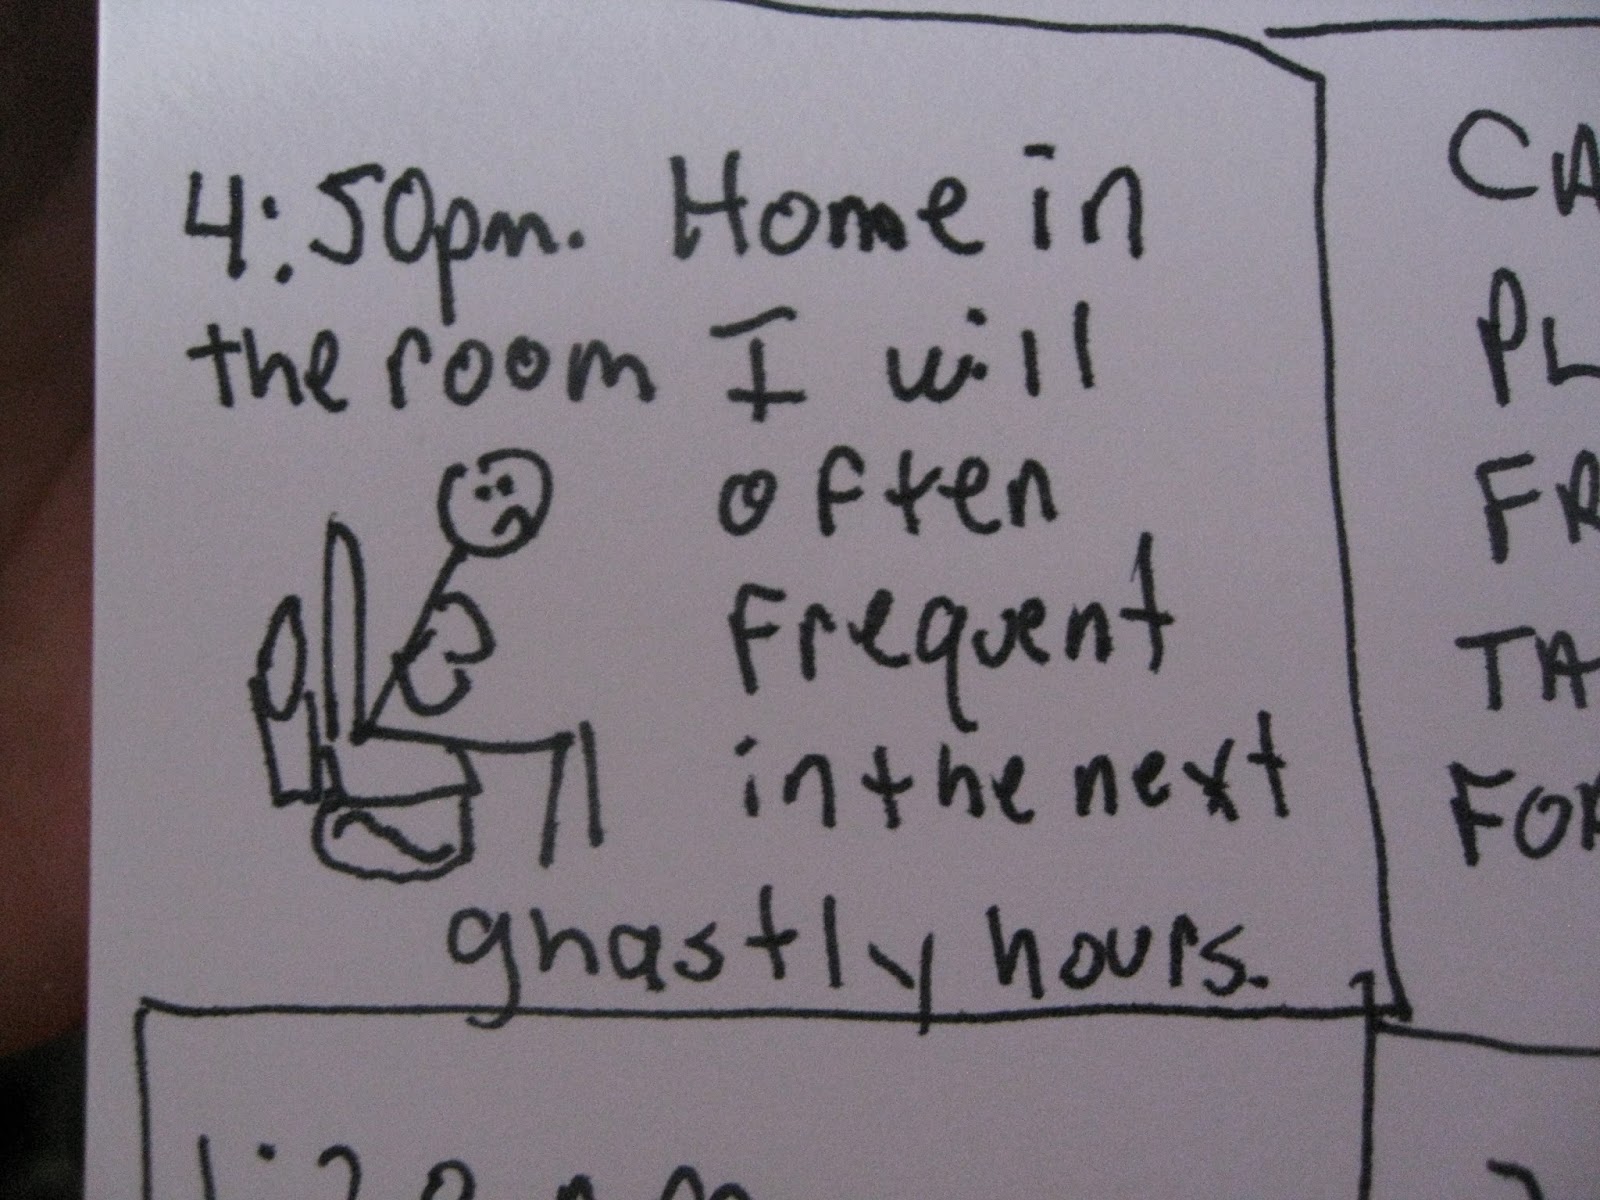 4:50pm. Home in
the room I will
often
frequent
in the next
ghastly hours.
CA
PL
FR
TA
FOR